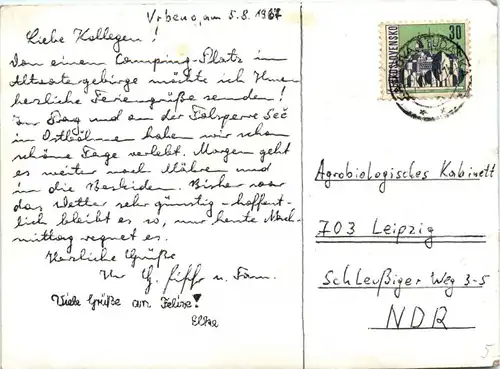 Vrbeno, am 5.8.1967
Liebe Kollegen!
Von einem Camping-Platz im
Altvatergebirge möchte ich Ihnen
herzliche Feriengrüße senden!
In Prag und an der Talsperre Seč
in Ostböhmen haben wir schon
schöne Tage verlebt. Morgen geht
es weiter nach Mähren und
in die Beskiden. Bisher war
das Wetter sehr günstig - hoffent-
lich bleibt es so, nur heute Nach-
mittag regnet es.
Herzliche Grüße
Ihr G. u. Fam.
Viele Grüße an Felize!
Elke
ČESKOSLOVENSKO
30
Agrobiologisches Kabinett
703 Leipzig
Schleußiger Weg 3-5
NDR
5